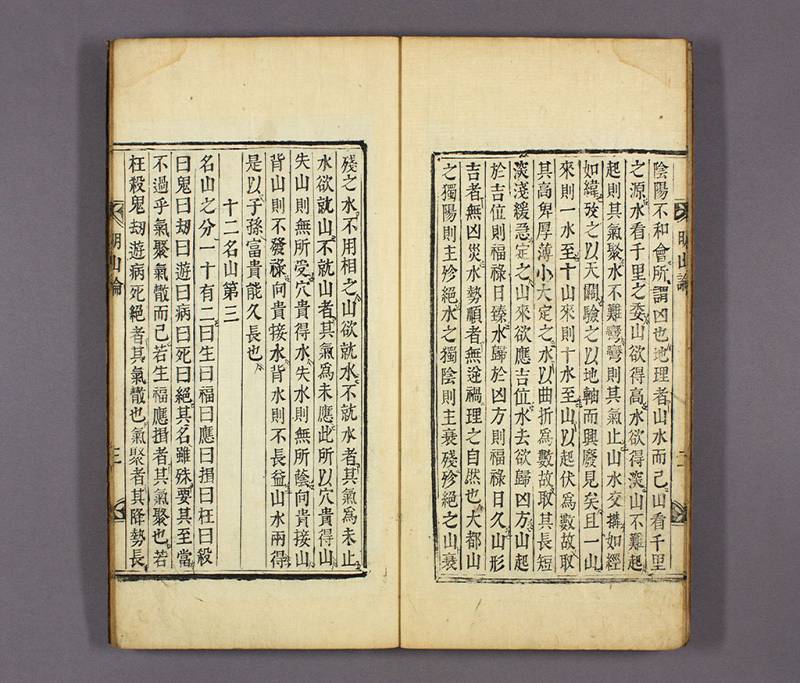 陰陽不和會所謂凶也地理者山水而已山看千里
之源水看千里之委山欲得高水欲得深山不難起
起則其氣聚水不難彎彎則其氣止山水交擠如經
如緯攷之以天關驗之以地軸而興廢見矣且一山
來則一水至十山來則十水至山以起伏爲數故取
其高卑厚薄小大定之水以曲折爲數故取其長短
深淺緩急定之山來欲應吉位水去欲歸凶方山起
於吉位則福祿日臻水歸於凶方則福祿日久山形
吉者無凶災水勢順者無逆禍理之自然也大都山
之獨陽則主殄絕水之獨陰則主衰殘殄絕之山衰
殘之水不用相之山欲就水不就水者其氣爲未止
水欲就山不就山者其氣爲未應此所以穴貴得山
失山則無所受穴貴得水失水則無所蔭向貴接山
背山則不發祿向貴接水背水則不長益山水兩得
是以子孫富貴能久長也
十二名山第三
名山之分一十有二曰生曰福曰應曰揖曰枉曰殺
曰鬼曰刼曰遊曰病曰死曰絕其名雖殊要其至當
不過乎氣聚氣散而已若生福應揖者其氣聚也若
枉殺鬼刼遊病死絕者其氣散也氣聚者其降勢長
明山論
二
明山論
三